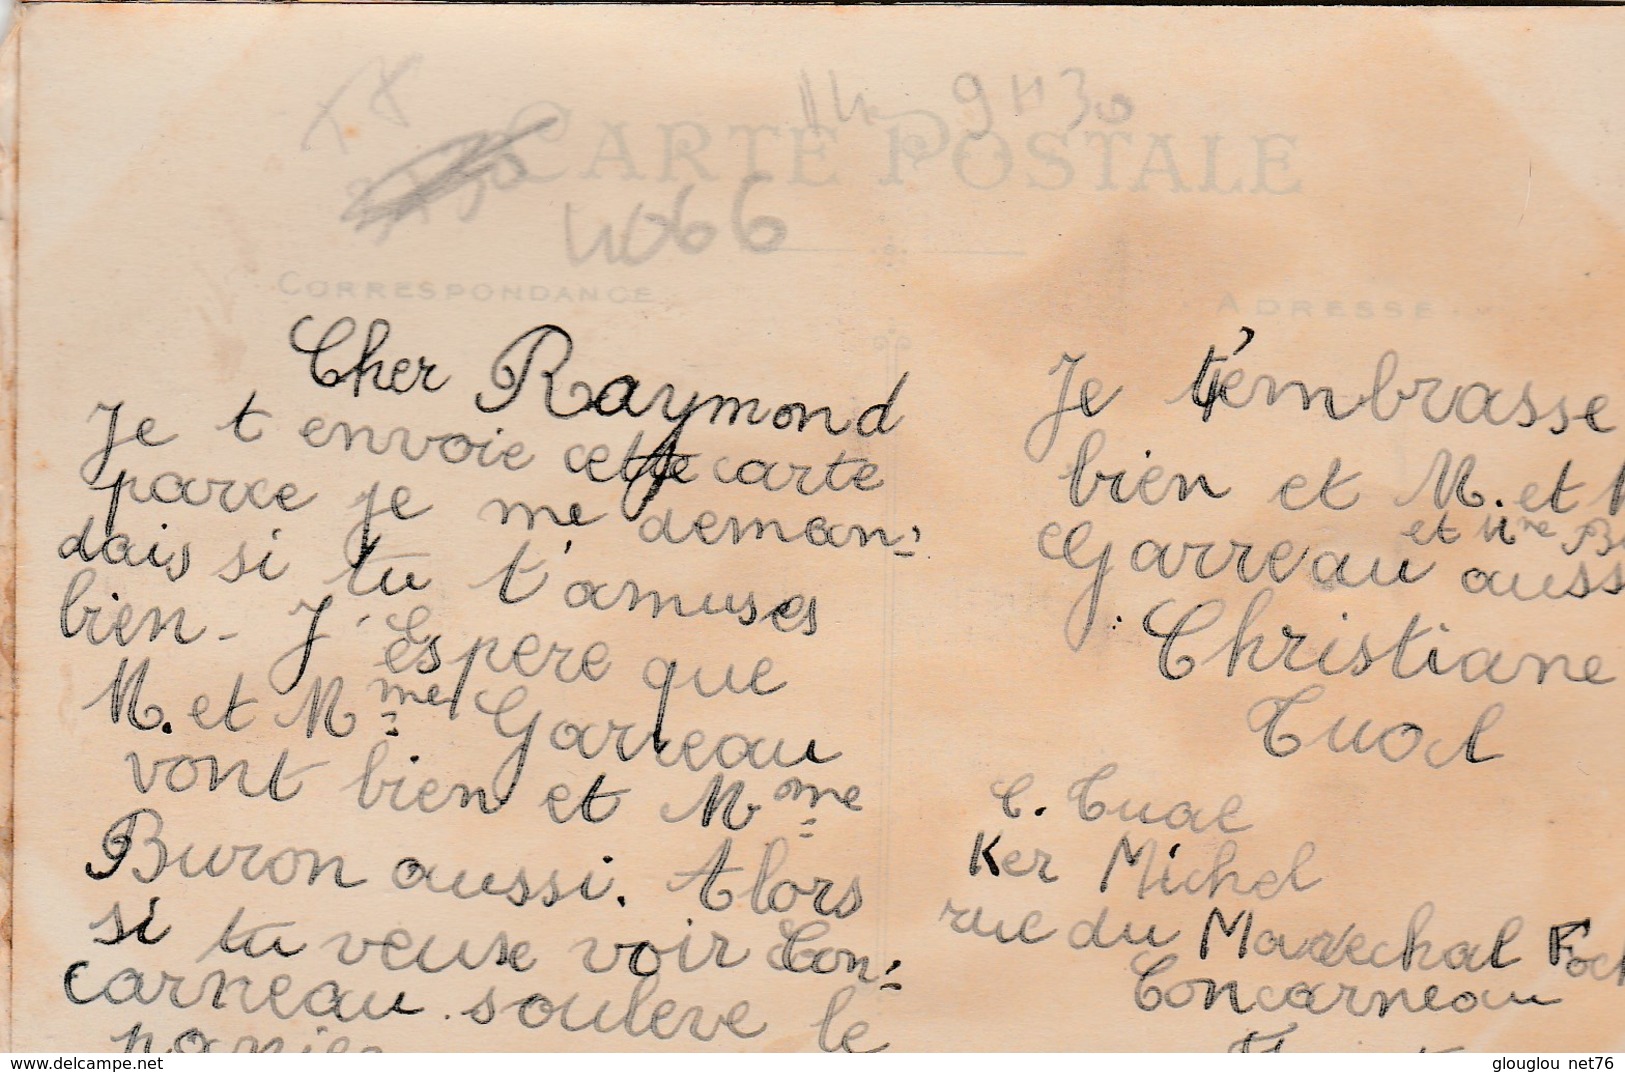 14 9 1130
CARTE POSTALE
4066
CORRESPONDANCE
Cher Raymond
Je t envoie cette carte
parce je me deman-
dais si tu t'amuses
bien - J'Espere que
M. et Mme Garreau
vont bien et Mme
Buron aussi. Alors
si tu veuse voir Con-
carneau souleve le
panier
ADRESSE
Je t'embrasse
bien et M. et
et Mme
Garreau
Christiane
Tual
C. Tual
Ker Michel
rue du Marechal Foch
Concarneau
glouglou net76